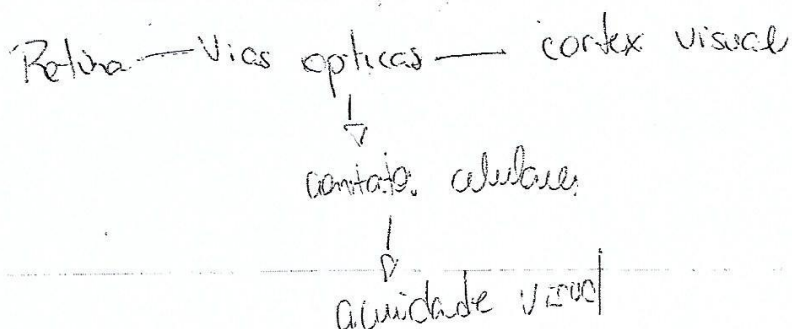 Retina — Vias opticas — cortex visual
contato celulares
acuidade visual